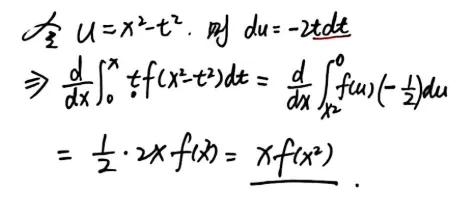 令 u=x²-t². 则 du=-2tdt
⇒ d/dx ∫₀ˣ tf(x²-t²)dt = d/dx ∫ₓ²⁰ f(u)(-1/2)du
= 1/2·2x f(x²) = xf(x²).